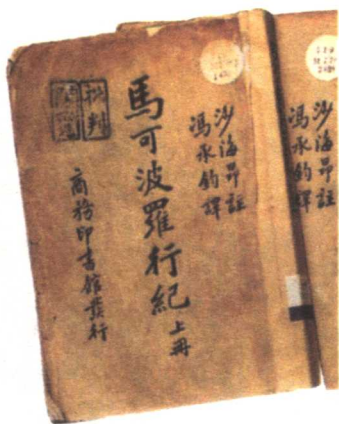 沙海昂註
馮承鈞譯
馬可波羅行紀 上冊
批判
商務印書館發行
沙海昂註
馮承鈞譯